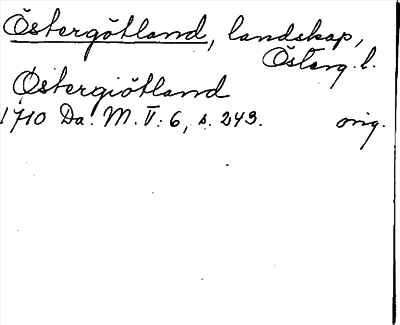 Östergötland, landskap,
Österg. l.
Östergiötland
1710 Da. M. V: 6, s. 243. orig.